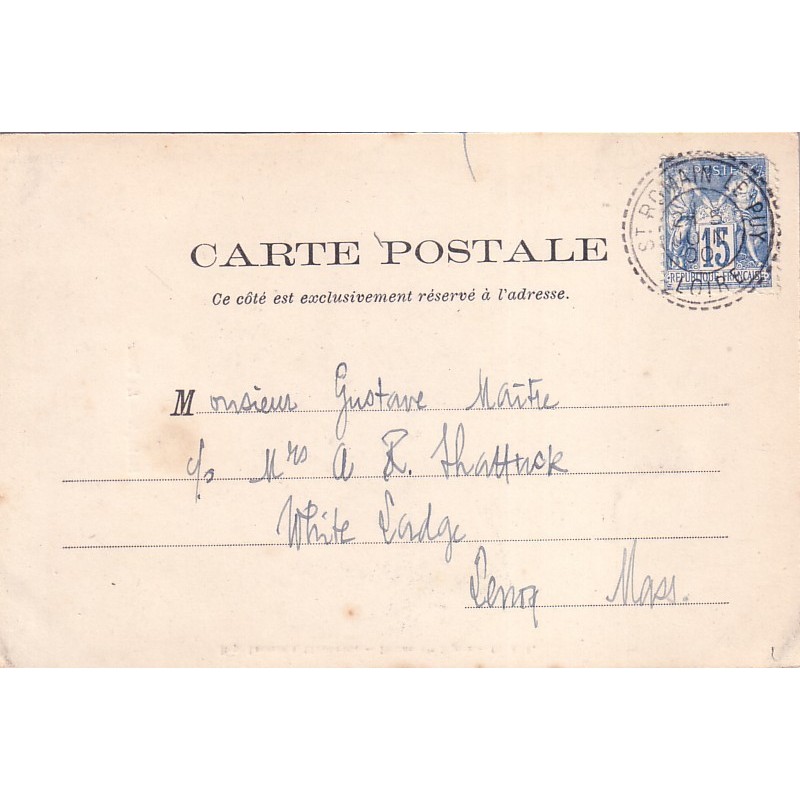 POSTE
15
REPUBLIQUE FRANÇAISE
ST ROMAIN-LE-PUY
LOIRE
CARTE POSTALE
Ce côté est exclusivement réservé à l'adresse.
Monsieur Gustave Maître
c/o Mrs A R. Shattuck
White Lodge
Lenox Mass.